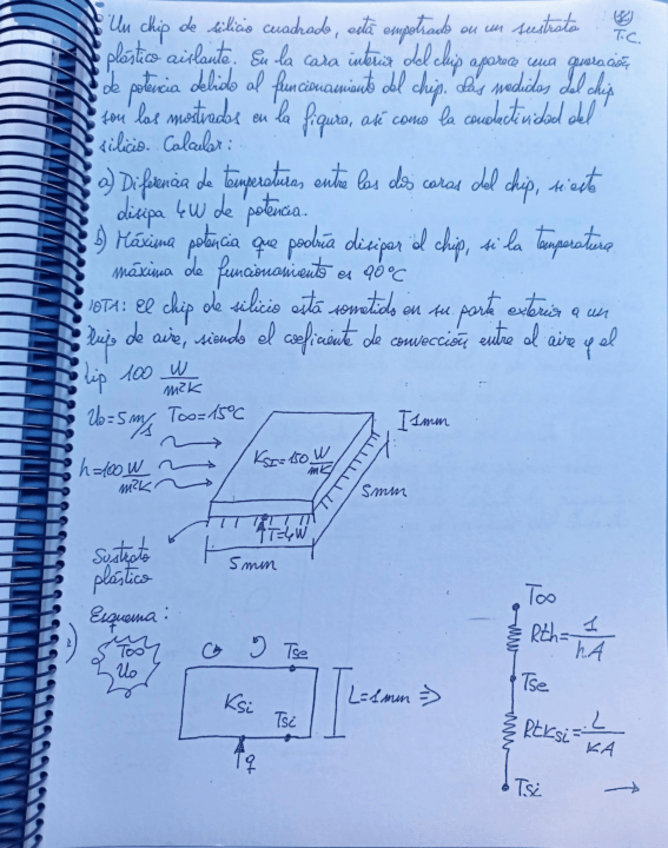 Un chip de silicio cuadrado, está empotrado en un sustrato
T.C.
plástico aislante. En la cara interior del chip aparece una generación
de potencia debido al funcionamiento del chip. Las medidas del chip
son las mostradas en la figura, así como la conductividad del
silicio. Calcular:
a) Diferencia de temperaturas entre las dos caras del chip, si este
disipa 4W de potencia.
b) Máxima potencia que podría disipar el chip, si la temperatura
máxima de funcionamiento es 90°C
NOTA: El chip de silicio está sometido en su parte exterior a un
flujo de aire, siendo el coeficiente de convección entre el aire y el
chip 100 W/m²K
U₀=5m/s T∞=15°C
I 1mm
K_SI=150 W/mK
h=100 W/m²K
5mm
T=4W
Sustrato
plástico
5mm
Esquema:
T∞
U₀
T∞
Rth=1/hA
Tse
Tse
K_Si
L=1mm ⇒
Tsi
RtK_Si=L/KA
q
Tsi →